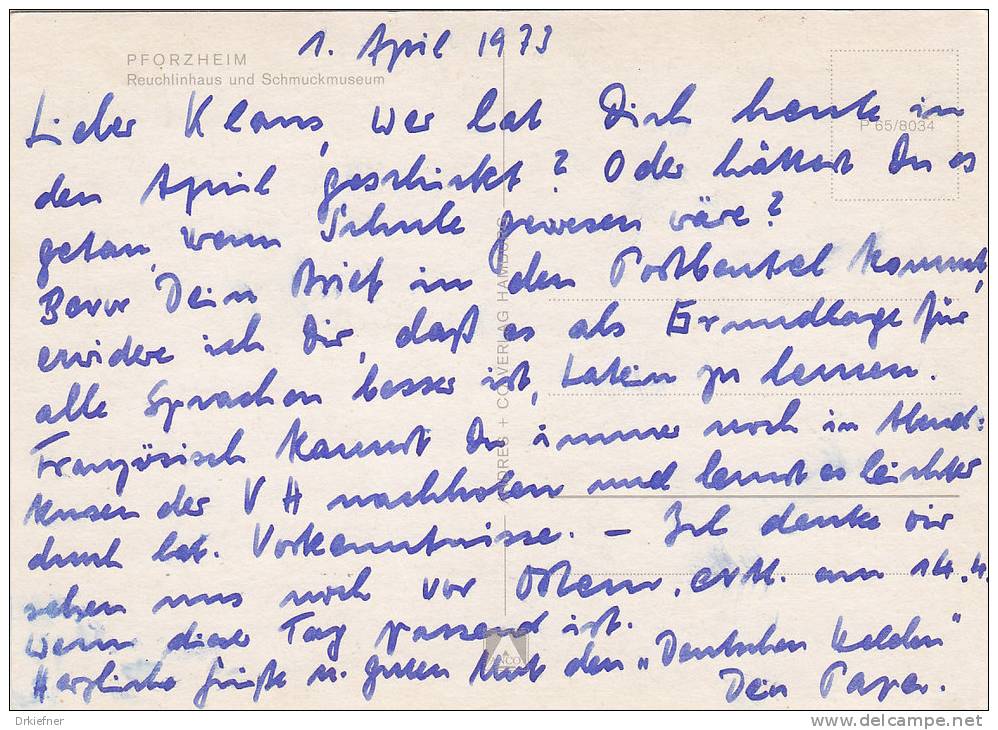 1. April 1973
PFORZHEIM
Reuchlinhaus und Schmuckmuseum
P 65/8034
Lieber Klaus, wer hat Dich heute in
den April geschickt? Oder hättest Du es
getan, wenn Schule gewesen wäre?
Bevor Dein Brief in den Postbeutel kommt,
erwidere ich Dir, daß es als Grundlage für
alle Sprachen besser ist, Latein zu lernen.
Französisch kannst Du immer noch in Abend-
kursen der VH nachholen und lernst es leichter
durch lat. Vorkenntnisse. – Ich denke wir
sehen uns noch vor Ostern, evtl. am 14.4.
wenn dieser Tag passend ist.
Herzliche Grüße u. guten Mut den „Deutschen Helden"
Dein Papa.
+ CO VERLAG HAMBURG
Drkiefner
delcampe.net